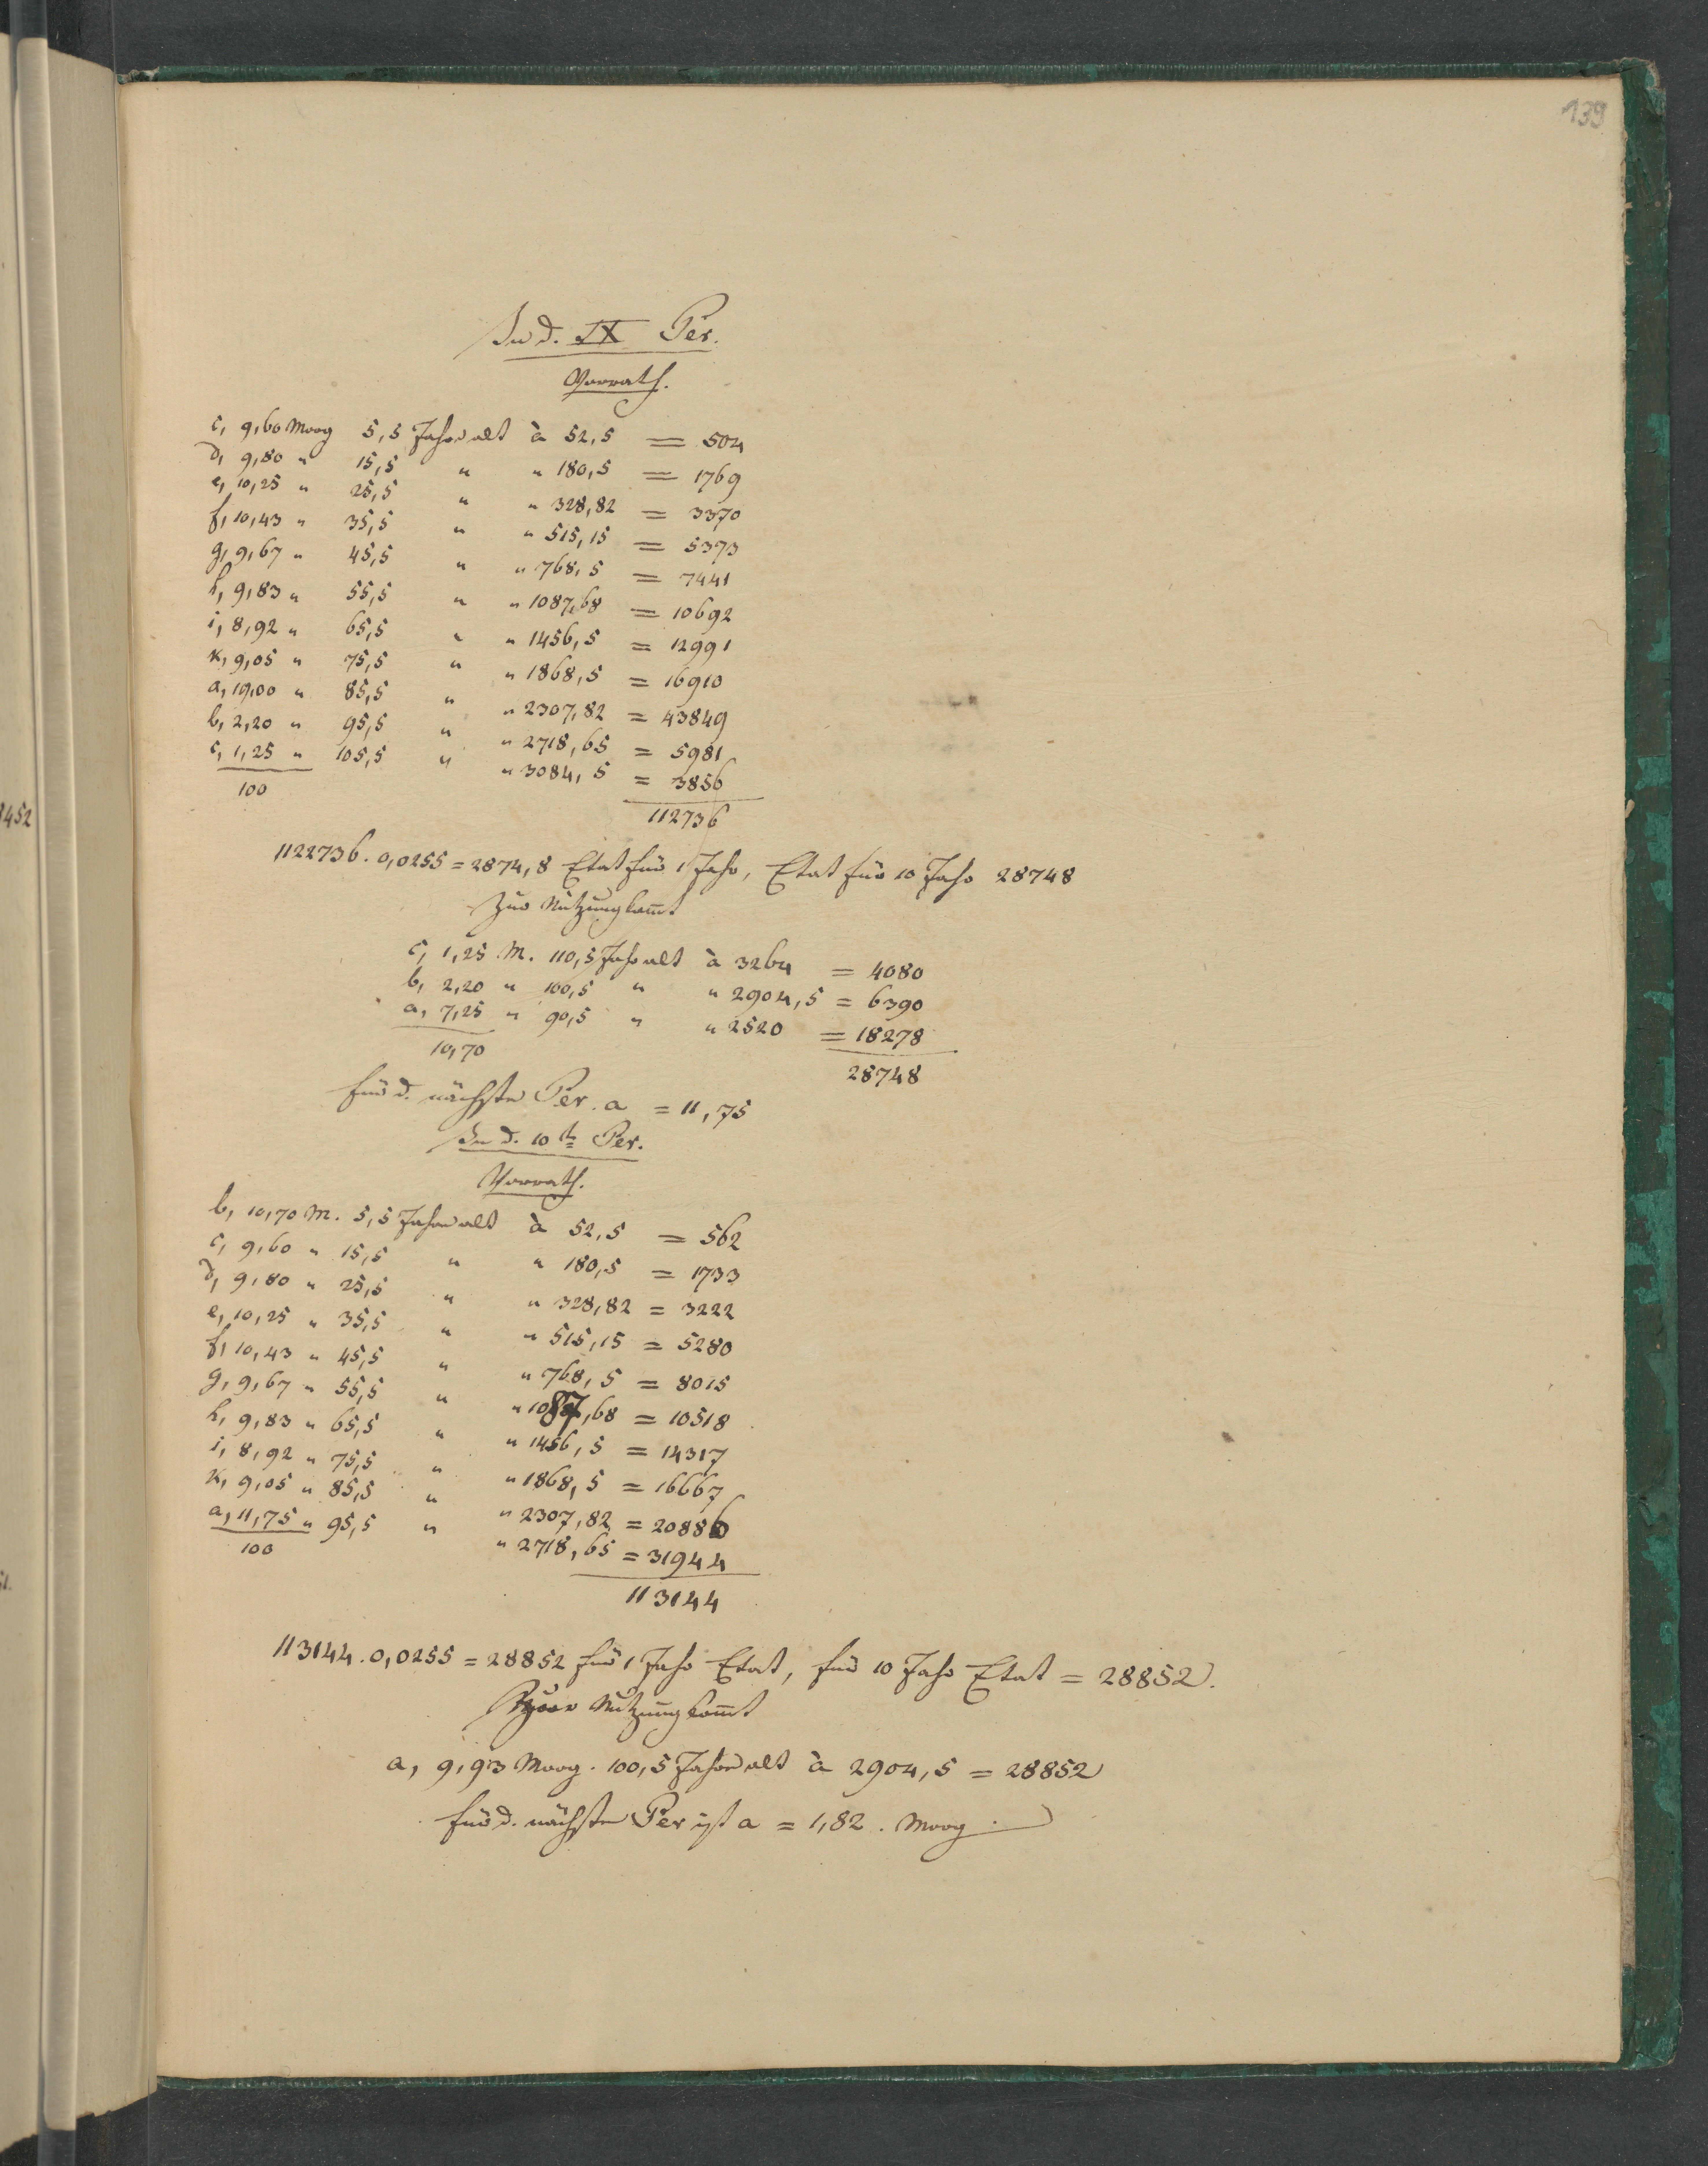 139
In d. IX Per.
Vorrath.
c, 9,60 Morg 5,5 Jahre alt à 52,5 = 504
d, 9,80 " 15,5 " " 180,5 = 1769
e, 10,25 " 25,5 " " 328,82 = 3370
f, 10,43 " 35,5 " " 515,15 = 5373
g, 9,67 " 45,5 " " 768,5 = 7441
h, 9,83 " 55,5 " " 1087,68 = 10692
i, 8,92 " 65,5 " " 1456,5 = 12991
k, 9,05 " 75,5 " " 1868,5 = 16910
a, 19,00 " 85,5 " " 2307,82 = 43849
b, 2,20 " 95,5 " " 2718,65 = 5981
c, 1,25 " 105,5 " " 3084,5 = 3856
100 112736
1122736. 0,0255 = 2874,8 Etat für 1 Jahr, Etat für 10 Jahr 28748
Zur Nutzung kom̄t
c, 1,25 M. 110,5 Jahr alt à 3264 = 4080
b, 2,20 " 100,5 " " 2904,5 = 6390
a, 7,25 " 90,5 " " 2520 = 18278
10,70 28748
für d. nächste Per. a = 11,75
In d. 10te Per.
Vorrath.
b, 10,70 M. 5,5 Jahre alt à 52,5 = 562
c, 9,60 " 15,5 " " 180,5 = 1733
d, 9,80 " 25,5 " " 328,82 = 3222
e, 10,25 " 35,5 " " 515,15 = 5280
f, 10,43 " 45,5 " " 768,5 = 8015
g, 9,67 " 55,5 " " 1087,68 = 10518
h, 9,83 " 65,5 " " 1456,5 = 14317
i, 8,92 " 75,5 " " 1868,5 = 16667
k, 9,05 " 85,5 " " 2307,82 = 20886
a, 11,75 " 95,5 " " 2718,65 = 31944
100 113144
113144. 0,0255 = 28852 für 1 Jahr Etat, für 10 Jahr Etat = 28852.
Zur Nutzung kom̄t
a, 9,93 Morg. 100,5 Jahre alt à 2904,5 = 28852
für d. nächste Per ist a = 1,82. Morg.
1452